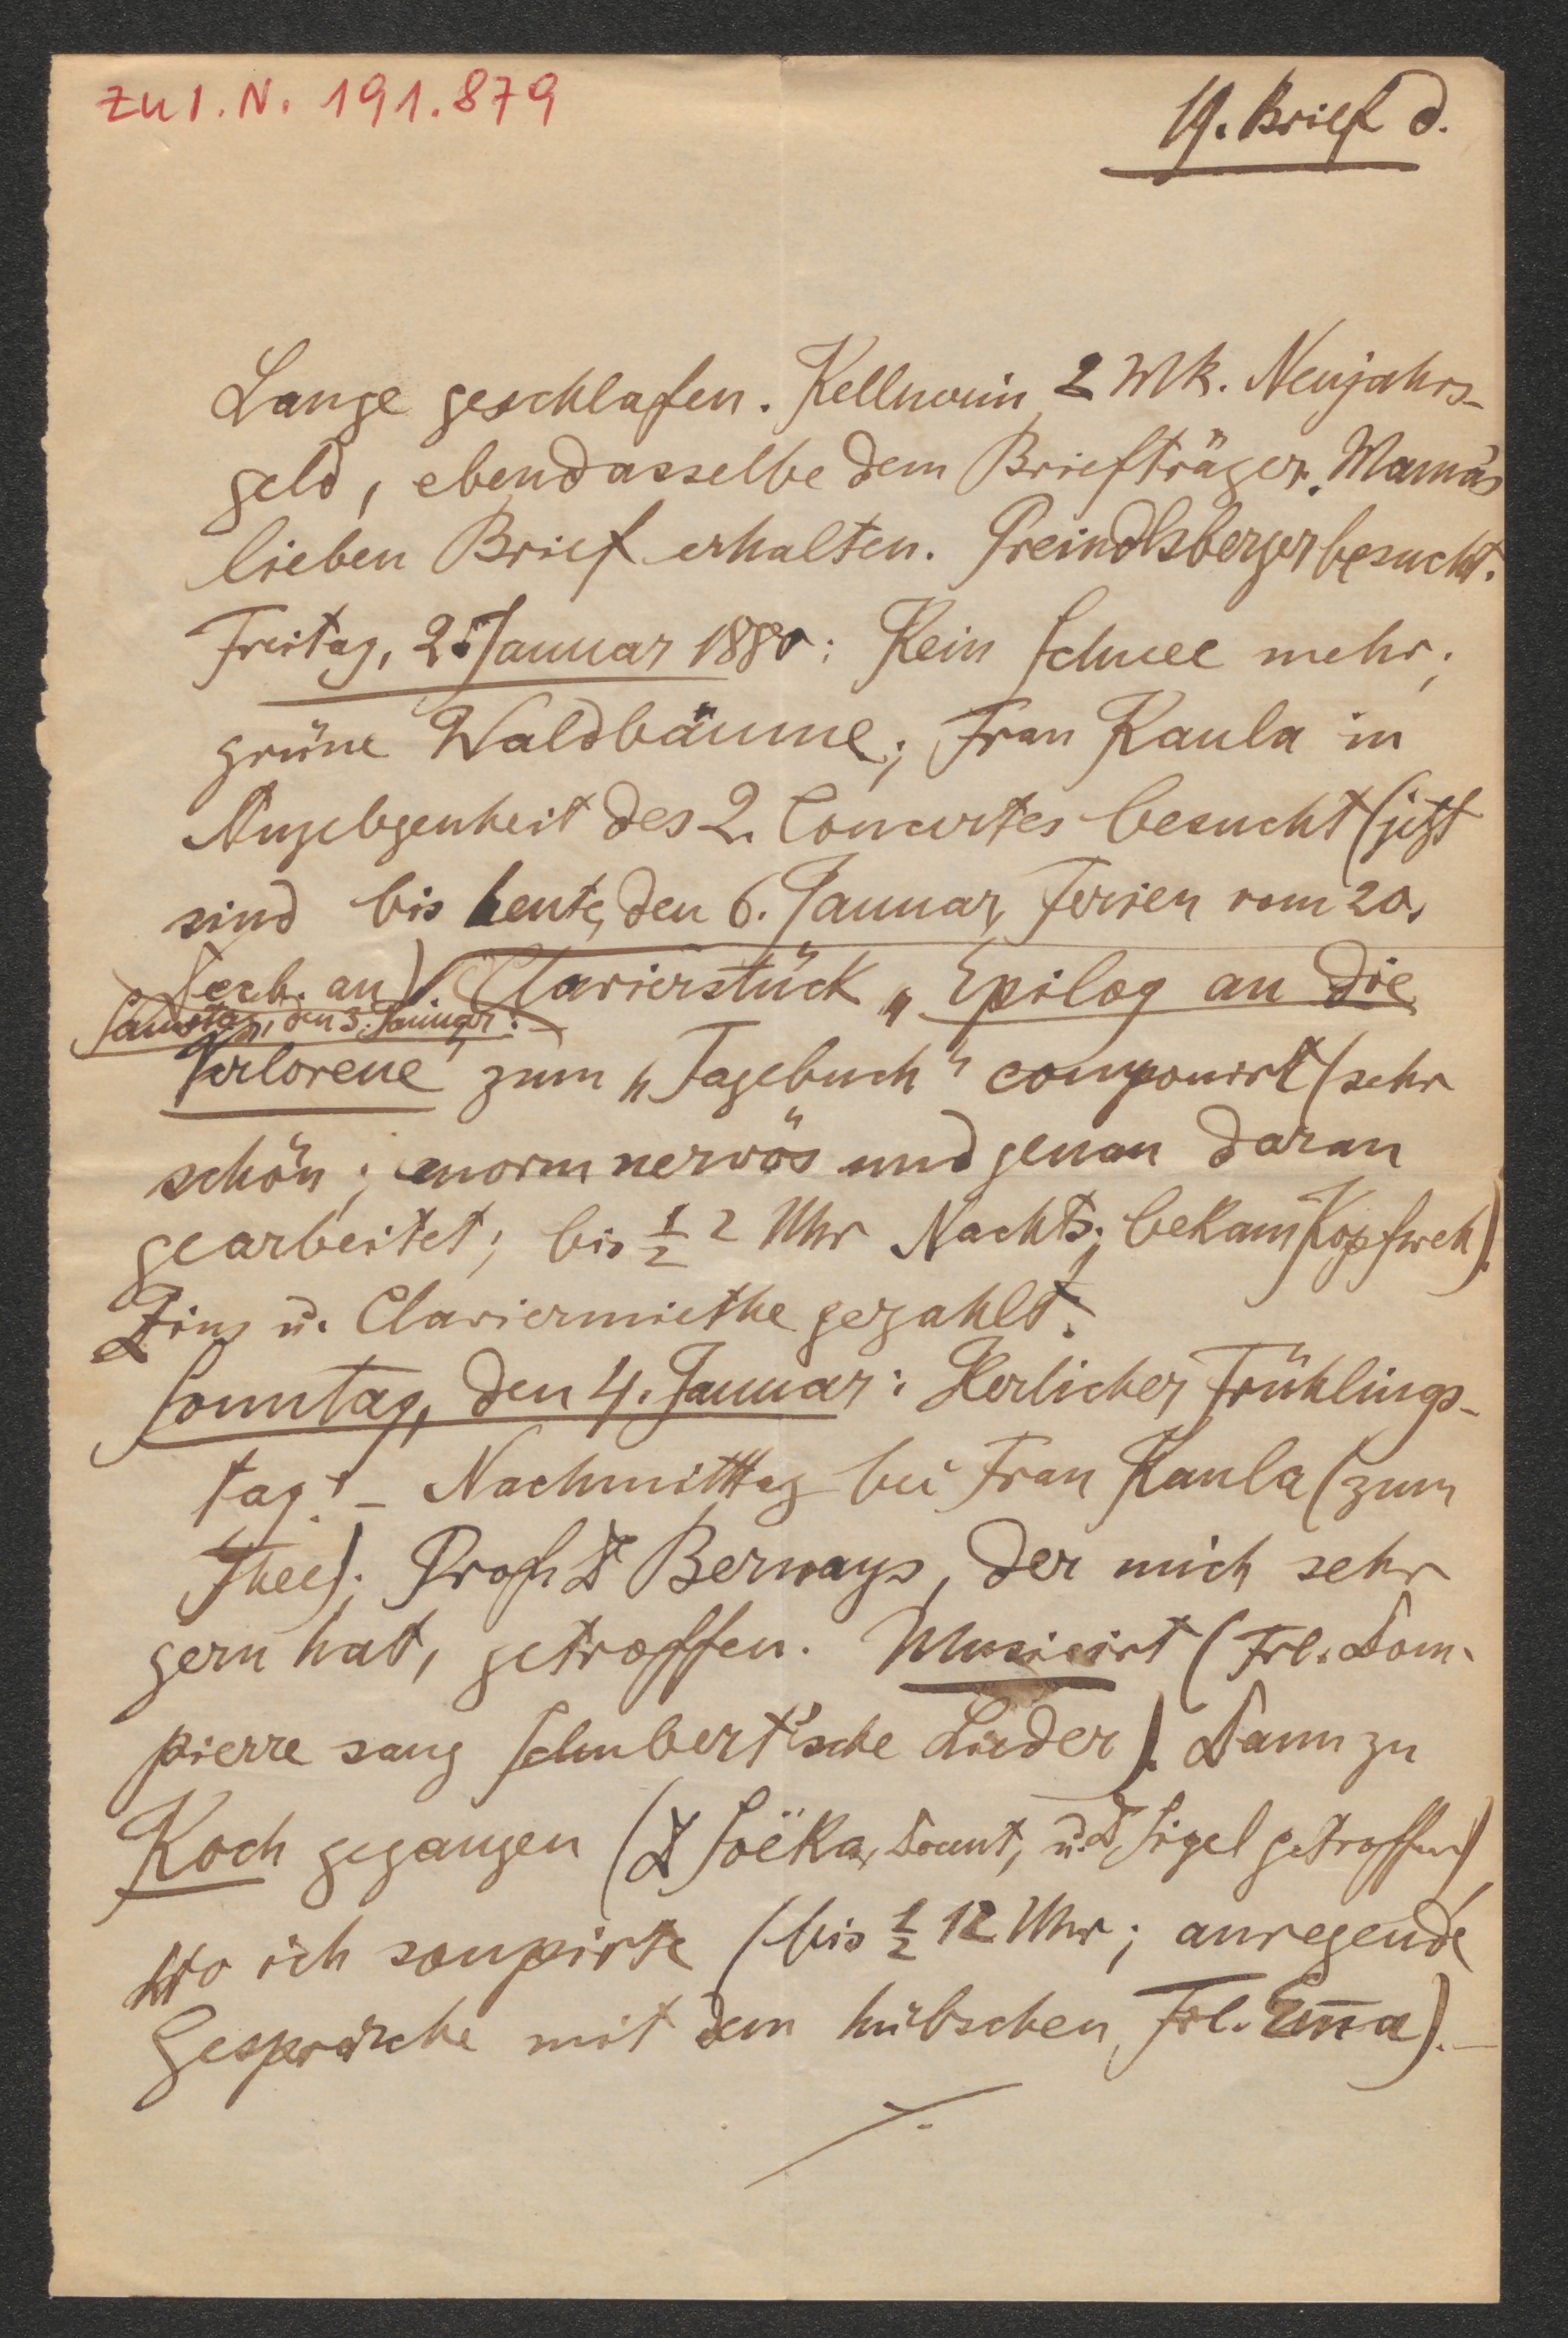 zu I. N. 191.879
19. Brief d.
Lange geschlafen. Kellnerin 2 Mk. Neujahrs-
geld, ebendasselbe dem Briefträger. Mama's
lieben Brief erhalten. Preindlsberger besucht.
Freitag, 2. Januar 1880: Kein Schnee mehr;
grüne Waldbäume; Frau Kaula in
Angelegenheit des 2. Concertes besucht (jetzt
sind bis heute, den 6. Januar, Ferien vom 20.
Dech. an). Clavierstück „Epilog an die
Samstag, den 3. Januar:
Verlorene" zum „Tagebuch" componirt (sehr
schön; enorm nervös und genau daran
gearbeitet; bis ½ 2 Uhr Nachts; bekam Kopfweh).
Zins u. Claviermiethe gezahlt.
Sonntag, den 4. Januar: Herlicher Frühlings-
tag! – Nachmitttag bei Frau Kaula (zum
Thee); Prof. D Bernays, der mich sehr
gern hat, getroffen. Musicirt (Frl. Dom-
pierre sang Schubert'sche Lieder). Dann zu
Koch gegangen (D u. D Sigel getroffen),
wo ich soupirte (bis ½ 12 Uhr; anregende
Gespräche mit dem hübschen Frl. Em̅a). –